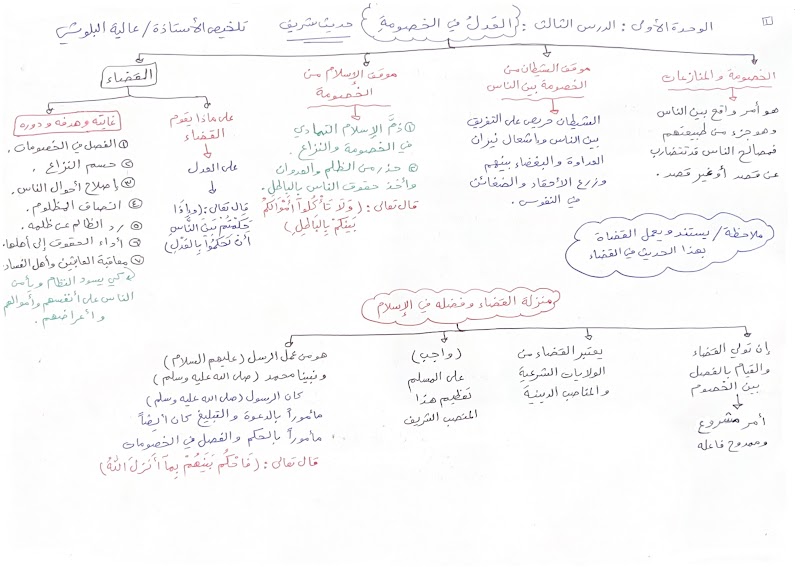 الوحدة الأولى : الدرس الثالث : العَدلُ في الخصومةِ حديث شريف تلخيص الأستاذة / عالية البلوشي
الخصومة والمنازعات
هو أمر واقع بين الناس
وهو جزء من طبيعتهم
فمصالح الناس قد تتضارب
عن قصد أو غير قصد .
موقف الشيطان من
الخصومة بين الناس
الشيطان حريص على التفريق
بين الناس وإشعال نيران
العداوة والبغضاء بينهم
وزرع الأحقاد والضغائن
في النفوس .
موقف الإسلام من
الخصومة
① ذمَّ الإسلام التمادي
في الخصومة والنزاع .
② حذر من الظلم والعدوان
وأخذ حقوق الناس بالباطل .
قال تعالى : (وَلَا تَأْكُلُوا أَمْوَالَكُمْ
بَيْنَكُمْ بِالْبَاطِلِ)
القضاء
على ماذا يقوم
القضاء
على العدل
قال تعالى : (وإِذَا
حَكَمْتُمْ بَيْنَ النَّاسِ
أَنْ تَحْكُمُوا بِالعَدْلِ)
غايته وهدفه ودوره
١. الفصل في الخصومات .
٢. حسم النزاع .
٣. إصلاح أحوال الناس .
٤. انصاف المظلوم .
٥. رد الظالم عن ظلمه .
٦. أداء الحقوق إلى أهلها .
٧. معاقبة العابثين وأهل الفساد
كي يسود النظام ويأمن
الناس على أنفسهم وأموالهم
وأعراضهم .
ملاحظة / يستند ويعمل القضاة
بهذا الحديث في القضاء
منزلة القضاء وفضله في الإسلام
إن تولي القضاء
والقيام بالفصل
بين الخصوم
أمر مشروع
وممدوح فاعله
يعتبر القضاء من
الولايات الشرعية
والمناصب الدينية
(واجب)
على المسلم
تعظيم هذا
المنصب الشريف
هو من عمل الرسل (عليهم السلام)
ونبينا محمد (صلى الله عليه وسلم)
كان الرسول (صلى الله عليه وسلم)
مأموراً بالدعوة والتبليغ كان أيضاً
مأموراً بالحكم والفصل في الخصومات .
قال تعالى : (فَاحْكُم بَيْنَهُمْ بِمَا أَنزَلَ اللهُ)